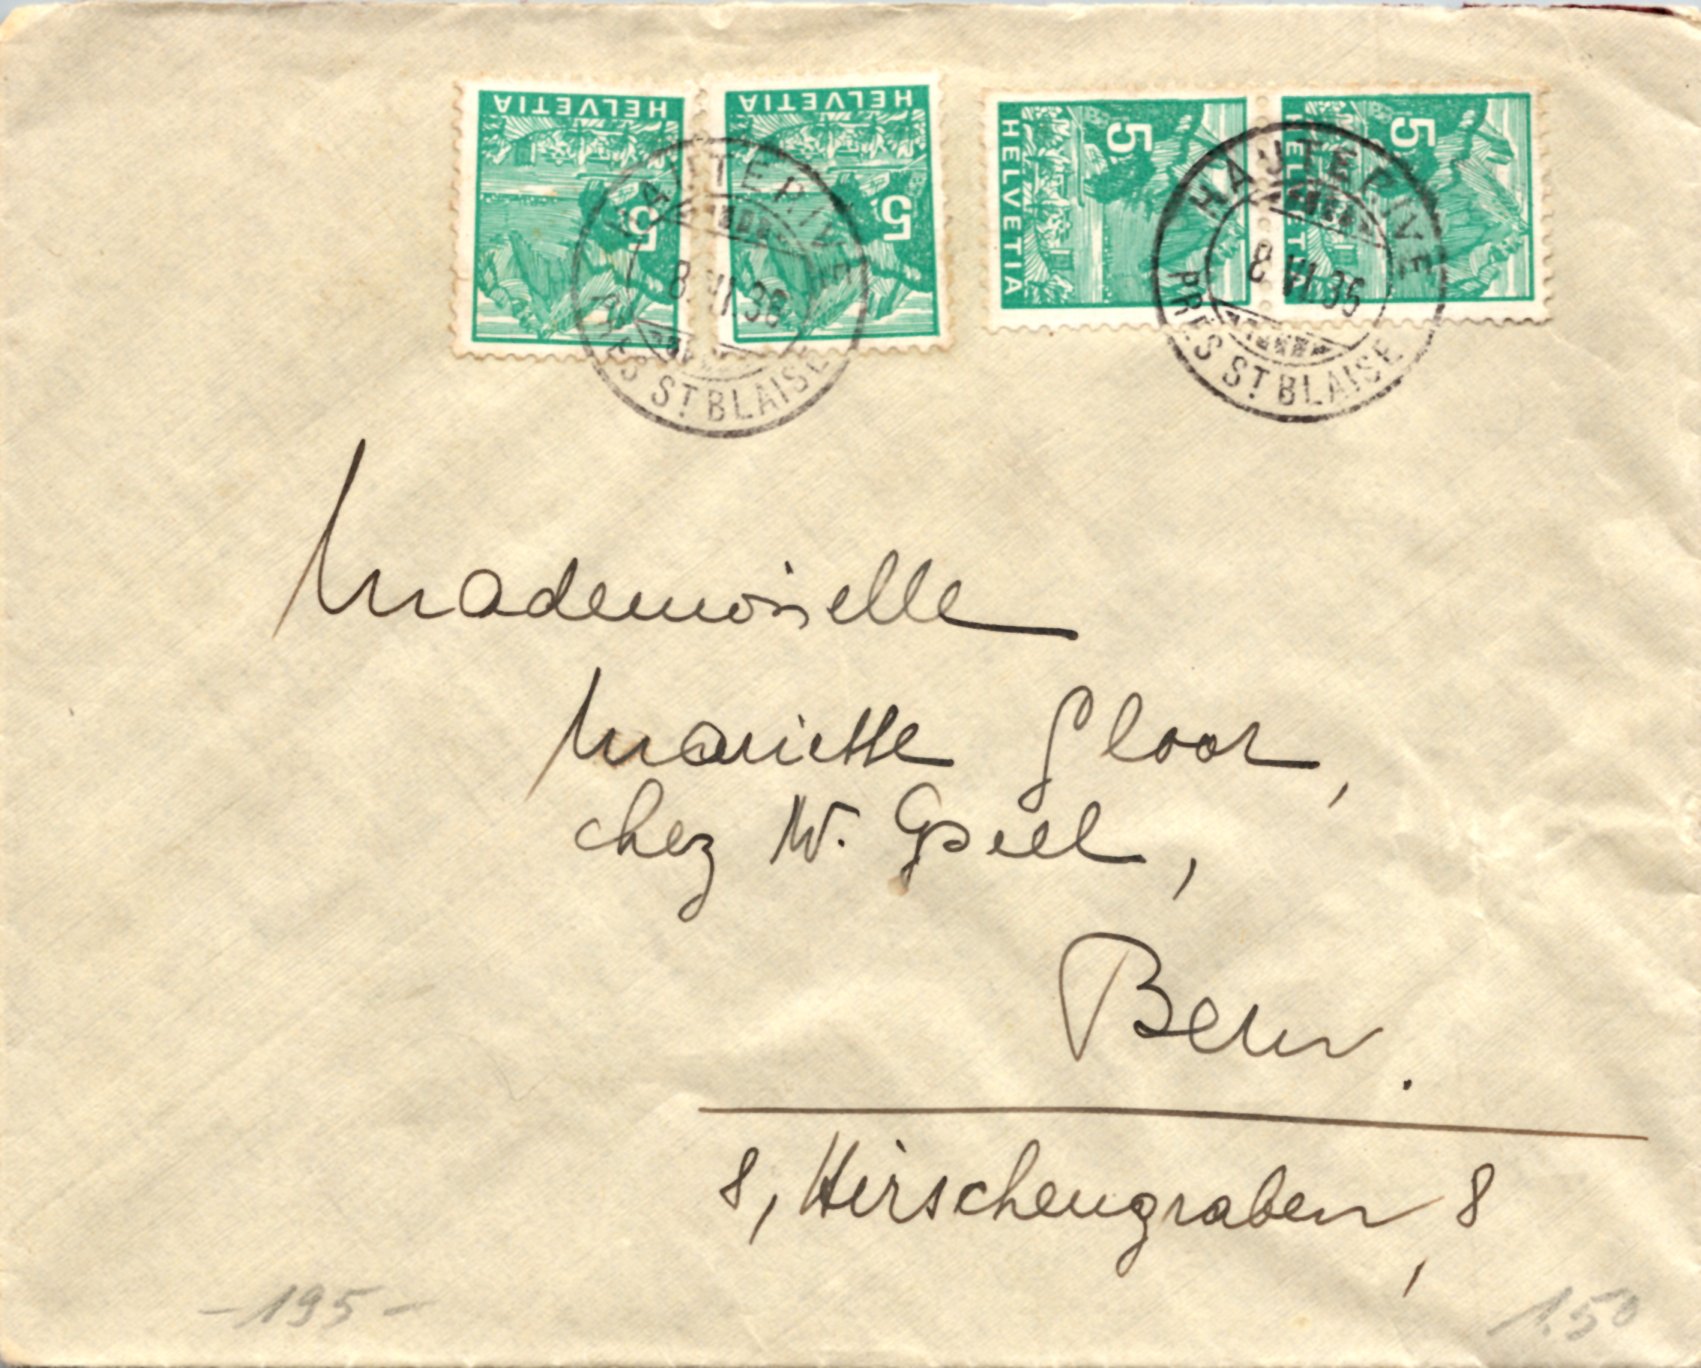 HELVETIA 5
HELVETIA 5
HELVETIA 5
HELVETIA 5
HAUTERIVE
8. VI. 36
PRÈS ST BLAISE
HAUTERIVE
8. VI. 36
PRÈS ST BLAISE
Mademoiselle
Mariette Gloor,
chez W. Gsell,
Bern.
8, Hirschengraben, 8
- 195 -
1.50